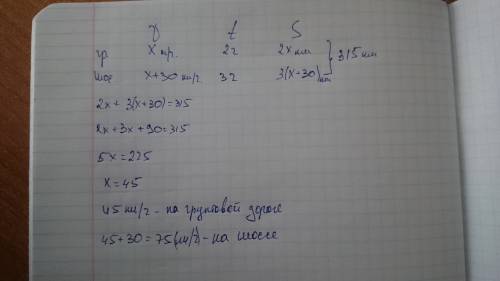 V t S
гр. x гр. 2ч 2x км
шос x+30 км/ч 3ч 3(x+30) км } 315 км
2x + 3(x+30)=315
2x + 3x + 90 = 315
5x = 225
x = 45
45 км/ч - на грунтовой дороге
45+30 = 75(км/ч) - на шоссе